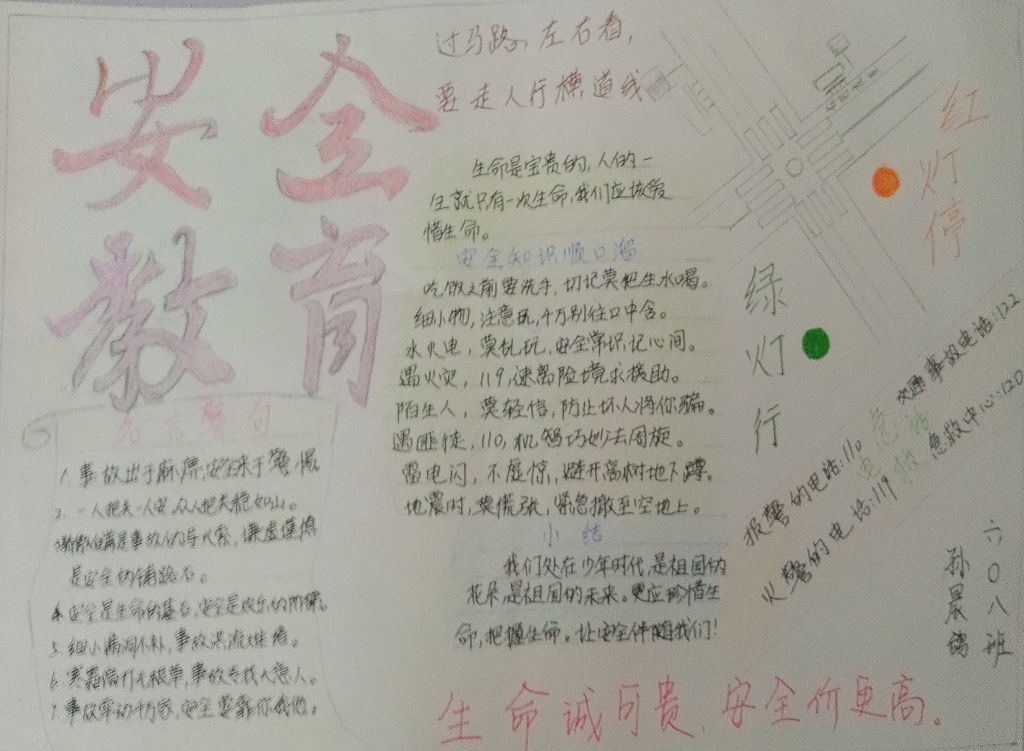 安全
教育
过马路,左右看,
要走人行横道线
生命是宝贵的,人的一
生就只有一次生命,我们应该爱
惜生命。
安全知识顺口溜
吃饭之前要洗手,切记莫把生水喝。
细小物,注意玩,千万别往口中含。
水火电,莫乱玩,安全常识记心间。
遇火灾,119,速离险境求援助。
陌生人,莫轻信,防止坏人将你骗。
遇匪徒,110,机智巧妙去周旋。
雷电闪,不展惊,避开高树地下蹲。
地震时,莫慌张,紧急撤至空地上。
小结
我们处在少年时代,是祖国的
花朵,是祖国的未来。更应珍惜生
命,把握生命。让安全伴随我们!
名言警句
1.事故出于麻痹,安全来于警惕
2.一人把关一人安,众人把关稳如山。
3.骄傲自满是事故的导火索,谦虚谨慎
是安全的铺路石。
4.安全是生命的基石,安全是欢乐的阶梯。
5.细小漏洞不补,事故洪流难堵。
6.寒霜偏打无根草,事故专找大意人。
7.事故牵动千万家,安全要靠你我他。
红灯停
绿灯行
报警的电话:110
火警的电话:119
交通事故电话:122
急救中心:120
六0八班
孙晨
生命诚可贵,安全价更高。